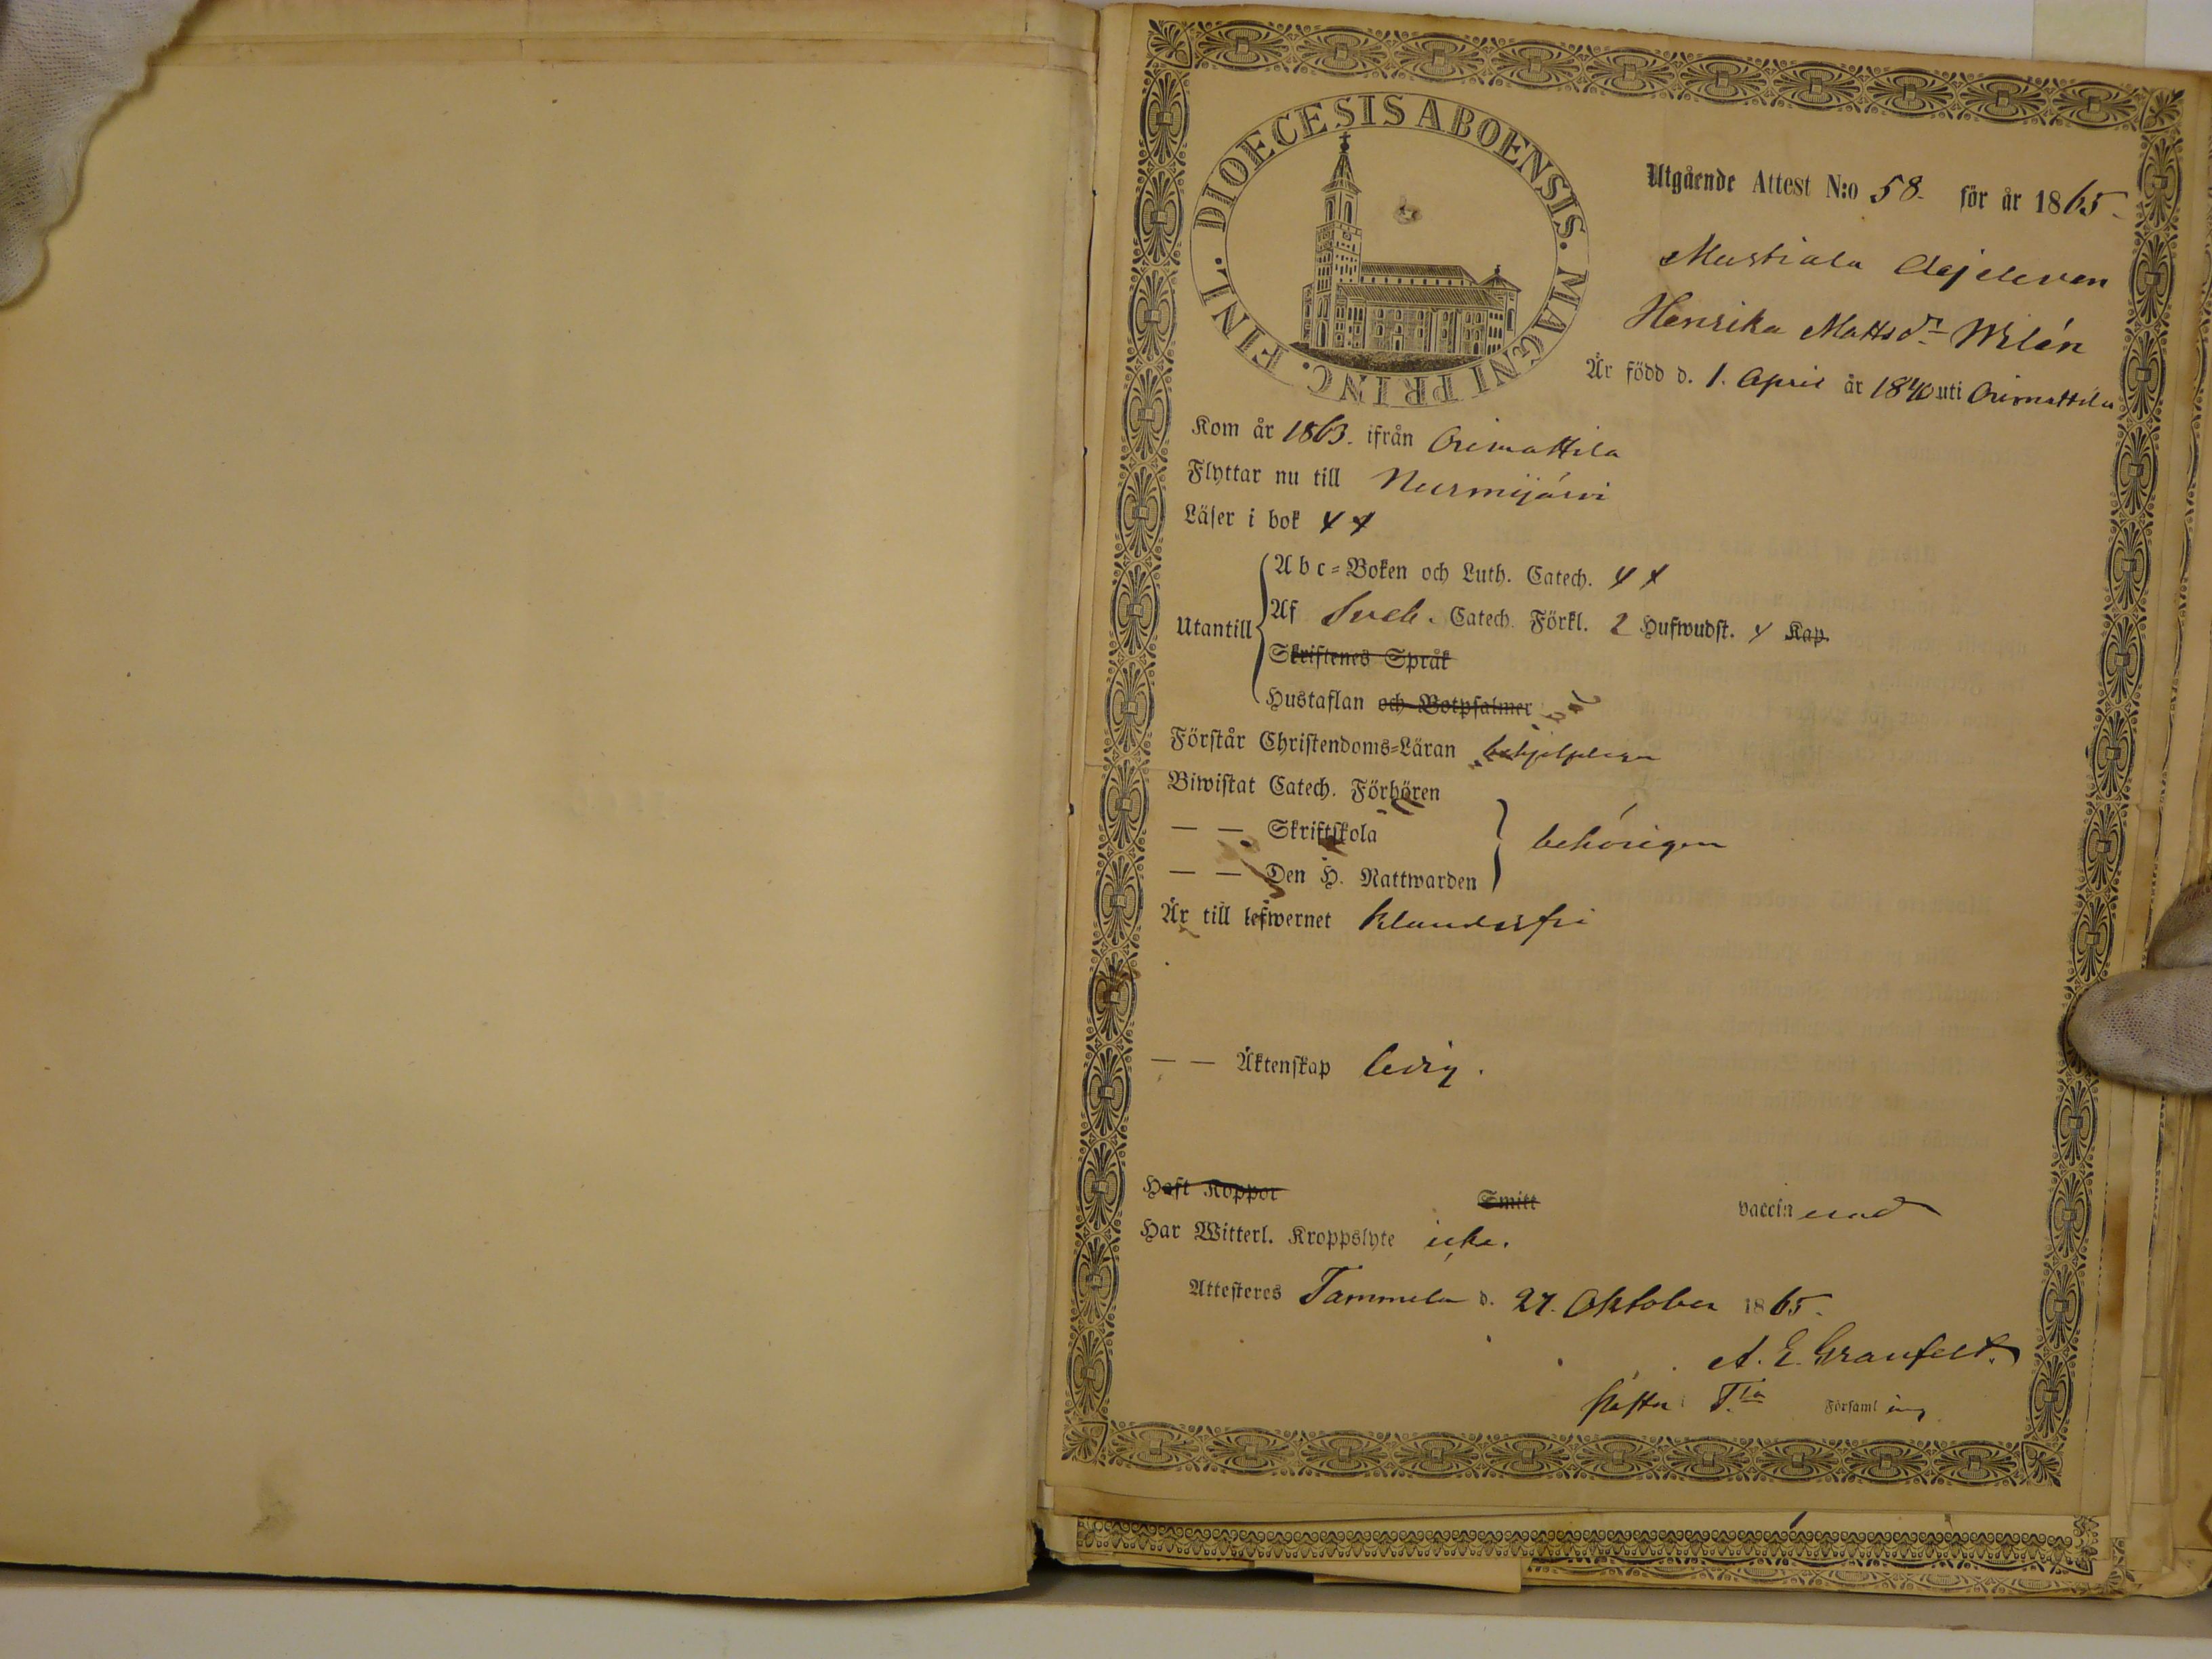 DIOECESIS ABOENSIS. MAGNI PRINC. FINL.
Utgående Attest N:o 58. för år 1865.
Mustiala Elejeleven
Henrika Mattsdr Wilén
Är född d. 1. April år 1840 uti Orimattila
Kom år 1863. ifrån Orimattila
Flyttar nu till Nurmijärvi
Läser i bok
Utantill
Abc=Boken och Luth. Catech.
Af Sveb. Catech. Förkl. 2 Hufwudst. Kap.
Skriftenes Språk
Hustaflan och Botpsalmer
Förstår Christendoms=Läran behjelpligen
Biwistat Catech. Förhören
— — Skriftskola behörigen
— — Den H. Nattwarden
Är till lefwernet klanderfri
— — Äktenskap ledig.
Haft Koppor Smitt vaccinerad
Har Witterl. Kroppslyte icke.
Attesteres Tammela d. 27. Oktober 1865.
A. E. Granfelt.
i Tla Församling